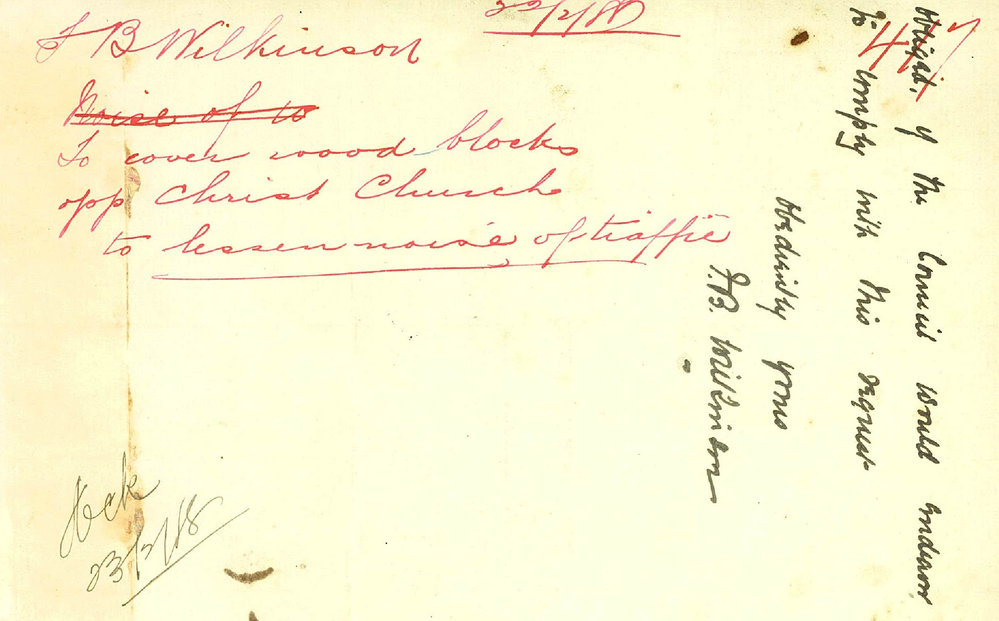 22/2/18
447
F B Wilkinson
Noise of to
To cover wood blocks
opp Christ Church
to lessen noise of traffic
obliged, if the Council would endeavor
to comply with this request
Obediently yours
F.B. Wilkinson
Ack
23/2/18